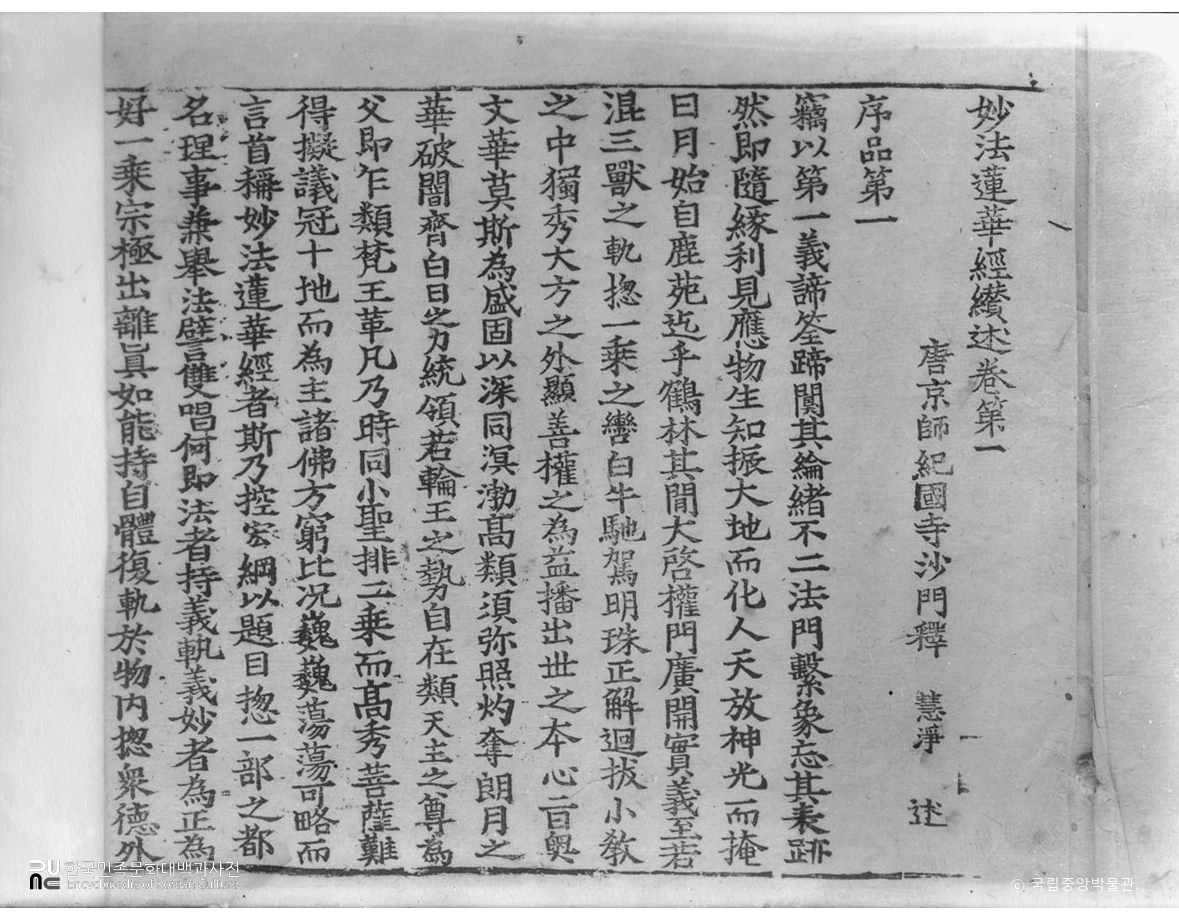 妙法蓮華經纉述卷第一
唐京師紀國寺沙門釋 慧淨 述
序品第一
竊以第一義諦筌蹄闃其綸緒不二法門繫象忘其表跡
然即隨緣利見應物生知振大地而化人天放神光而掩
日月始自鹿苑迄乎鶴林其間大啓權門廣開實義至若
混三獸之軌揔一乘之轡白牛馳駕明珠正解迴拔小教
之中獨秀大方之外顯善權之為益播出世之本心言奧
文華莫斯為盛固以深同溟渤高類須弥照灼奪朗月之
華破闇齊白日之力統領若輪王之勢自在類天主之尊為
父即乍類梵王革凡乃時同小聖排二乘而高秀菩薩難
得擬議冠十地而為主諸佛方窮比况巍巍蕩蕩可略而
言首稱妙法蓮華經者斯乃控宏綱以題目揔一部之都
名理事兼舉法譬雙唱何即法者持義軌義妙者為正為
好一乘宗極出離真如能持自體復軌於物内揔衆德外
한국민족문화대백과사전
Encyclopedia of Korean Culture
ⓒ 국립중앙박물관